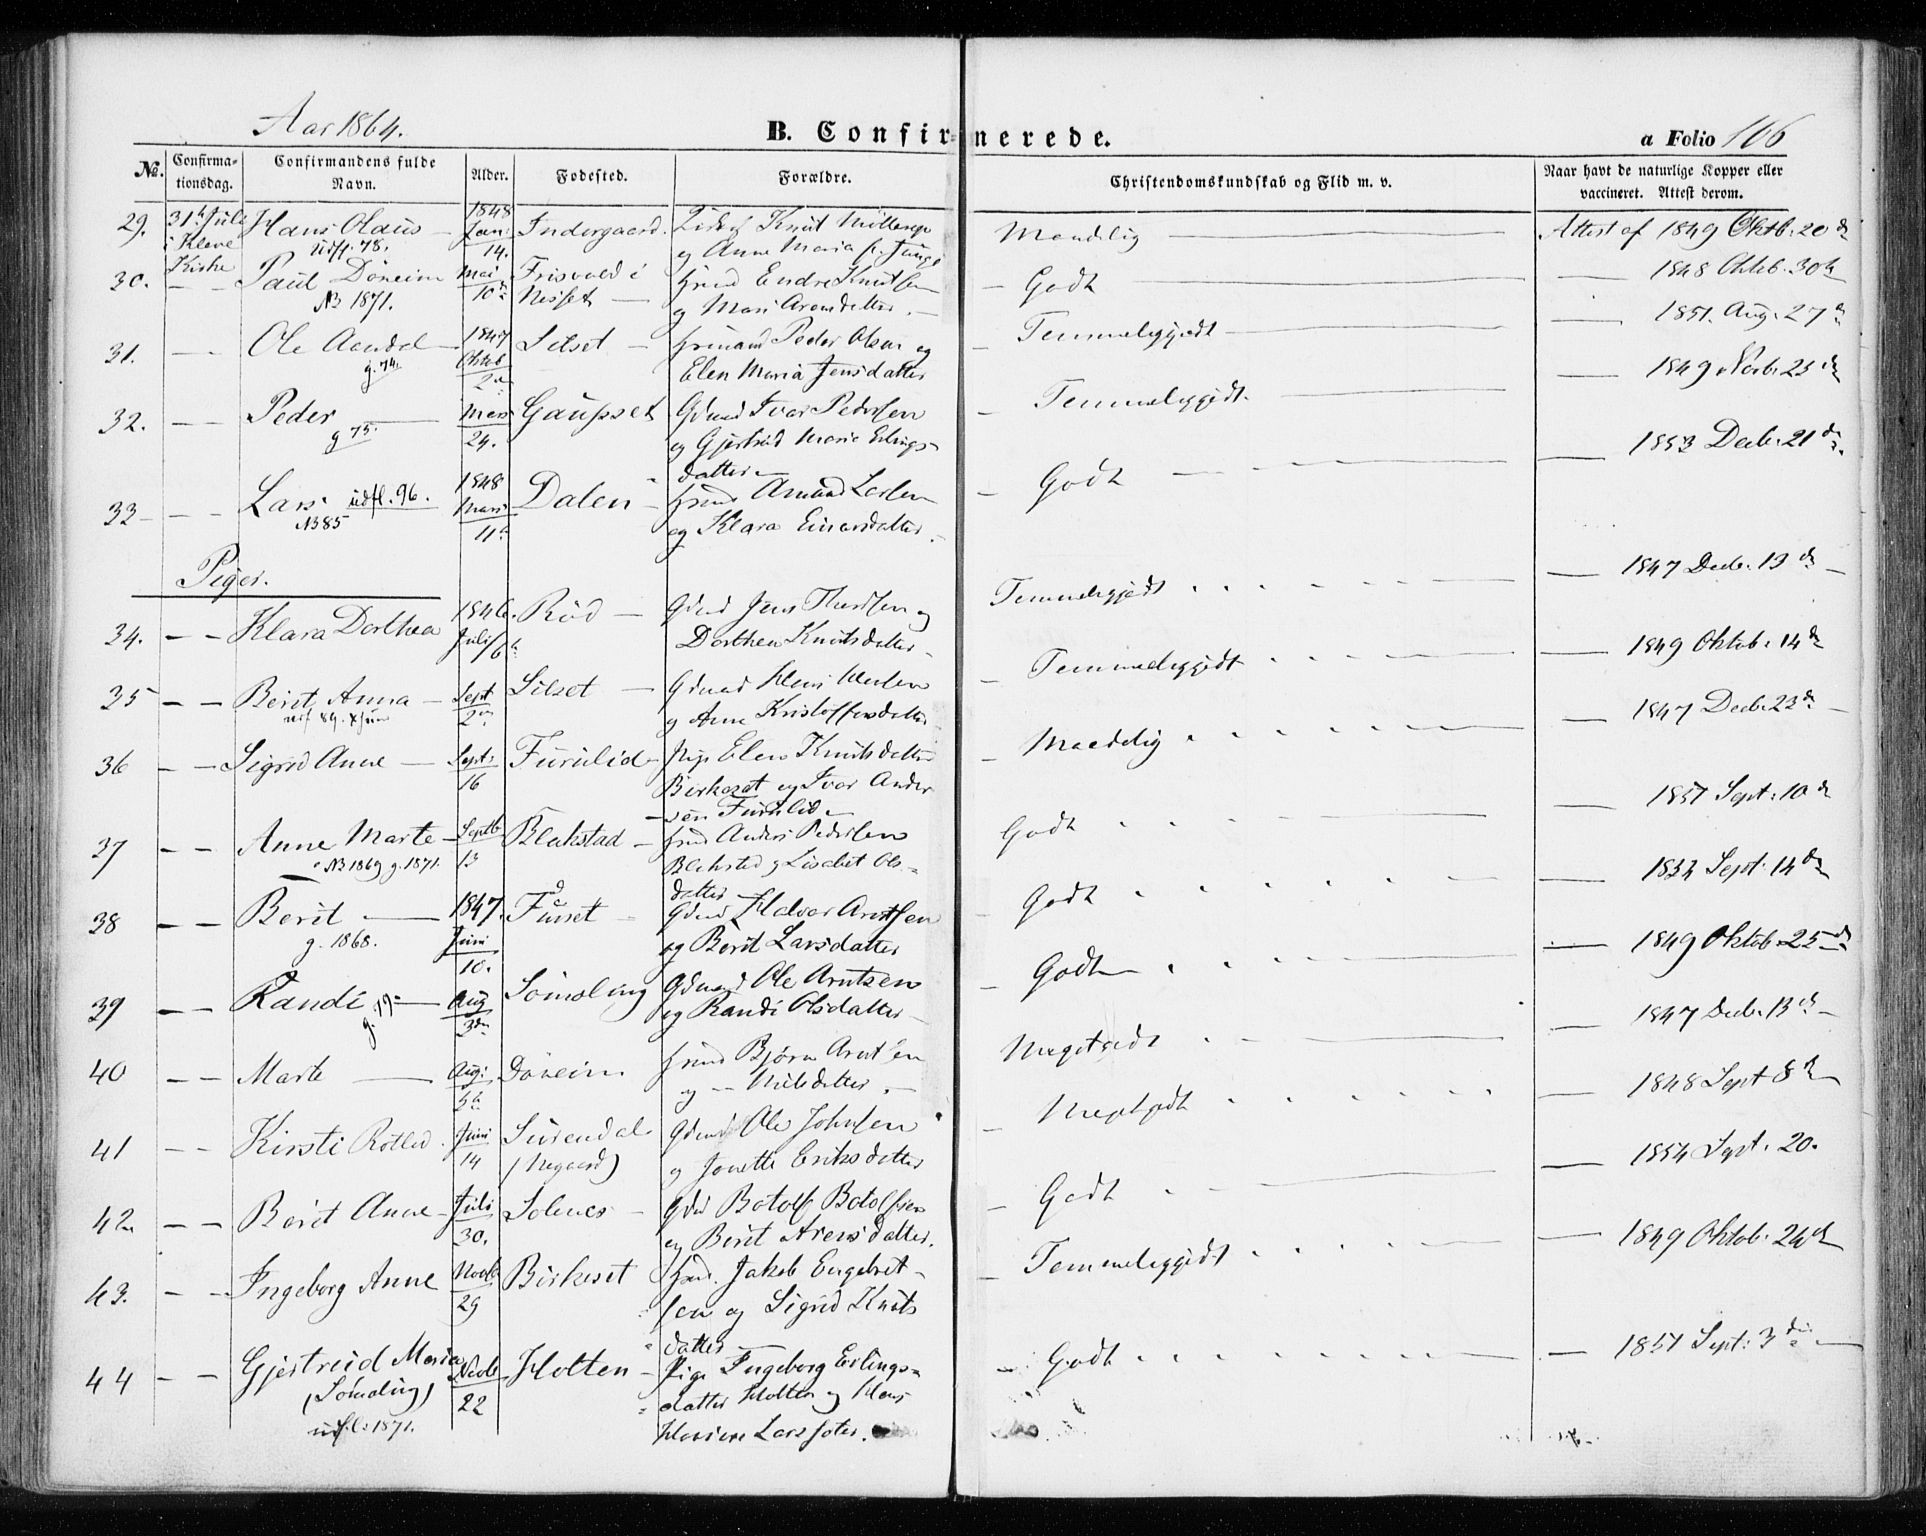 Aar 1864.
B. Confirmerede.
a Folio 106
No.
Confirma-
tionsdag.
Confirmandens fulde
Navn.
Alder.
Fødested.
Forældre.
Christendomskundskab og Flid m. v.
Naar havt de naturlige Kopper eller
vaccineret. Attest derom.
29. 31te Juli Hans Olaus 1848 Jan: 14. Indergaard. Knut
i Kleve udfl. 78. og Anne Maria
Kirke
Maadelig Attest af 1849 Oktb. 20de
30. Paul Döneim Mai 10de Frisvold i Endre Knutsen
NB 1871. Nesset og Mari Arensdatter
Godt 1848 Oktob. 30te
31. Ole 1847 Oktob 2den Silset Peder Olsen og
g. 74. Elen Maria Jensdatter
Temmeliggodt 1851. Aug. 27de
32. Peder Mars 24. Gausset Gdmd Ivar Pedersen
g 75. og Gjertrud Marie Erlings-
datter
Temmeliggodt. 1849 Novb. 25de
33 Lars udfl. 96. 1848 Mars 11te Dalen Amund Larsen
NB 85 og Klara Einarsdatter
Godt 1853 Decb. 21de
Piger.
34. Klara Dorthea 1846. Juli 6te Röd Gdmd Jens og
Dorthea Knutsdatter
Temmeliggodt 1847 Decb. 13de
35 Berit Anna Sept 2den Silset Gdmd
og Anne Kristoffersdatter
Temmeliggodt 1849 Oktob. 14de
36 Sigrid Anne Sept. 16 Furulid Pige Elen Knutsdatter
Birkeset og Ivar Ander
sen Furulid
Maadelig 1847 Decb. 23de
37 Anne Marte Septb 13 Blekstad Anders Pedersen
NB 1869 g. 1871. Blekstad og Lisabet Ols-
datter
Godt 1851 Sept. 10de
38 Berit 1847. Juni 10. Furset Gdmd Halvor Arntsen
g. 1868. og Berit Larsdatter
Godt Sept. 14de
39 Randi Aug 3de Sömsling Gdmd Ole Arntsen
og Randi Olsdatter
Godt 1849 Oktob. 25de
40 Marte Aug. 5te Döneim Björn Arntsen
og — Nilsdatter.
Megetgodt 1847 Decb. 13de
41 Kirsti Juni 14 Surendal Gdmd Ole Johnsen
(Negaard) og Jonette Eriksdatter
Megetgodt 1848 Sept 8de
42 Berit Anne Juli 30. Solnes Gdmd Botolf Botolfsen
og Berit Arensdatter.
Godt 1854 Sept. 20.
43. Ingeborg Anne Novb 29 Birkeset Jakob Engebret-
sen og Sigrid Knuts
datter
Temmeliggodt 1849 Oktob. 24de
44 Gjertrud Maria Novb 22 Holten Pige Ingeborg Erlings-
(Sömsling) datter Holten og Hans
udfl. 1871. Larssöter.
Godt 1851 Sept. 3die